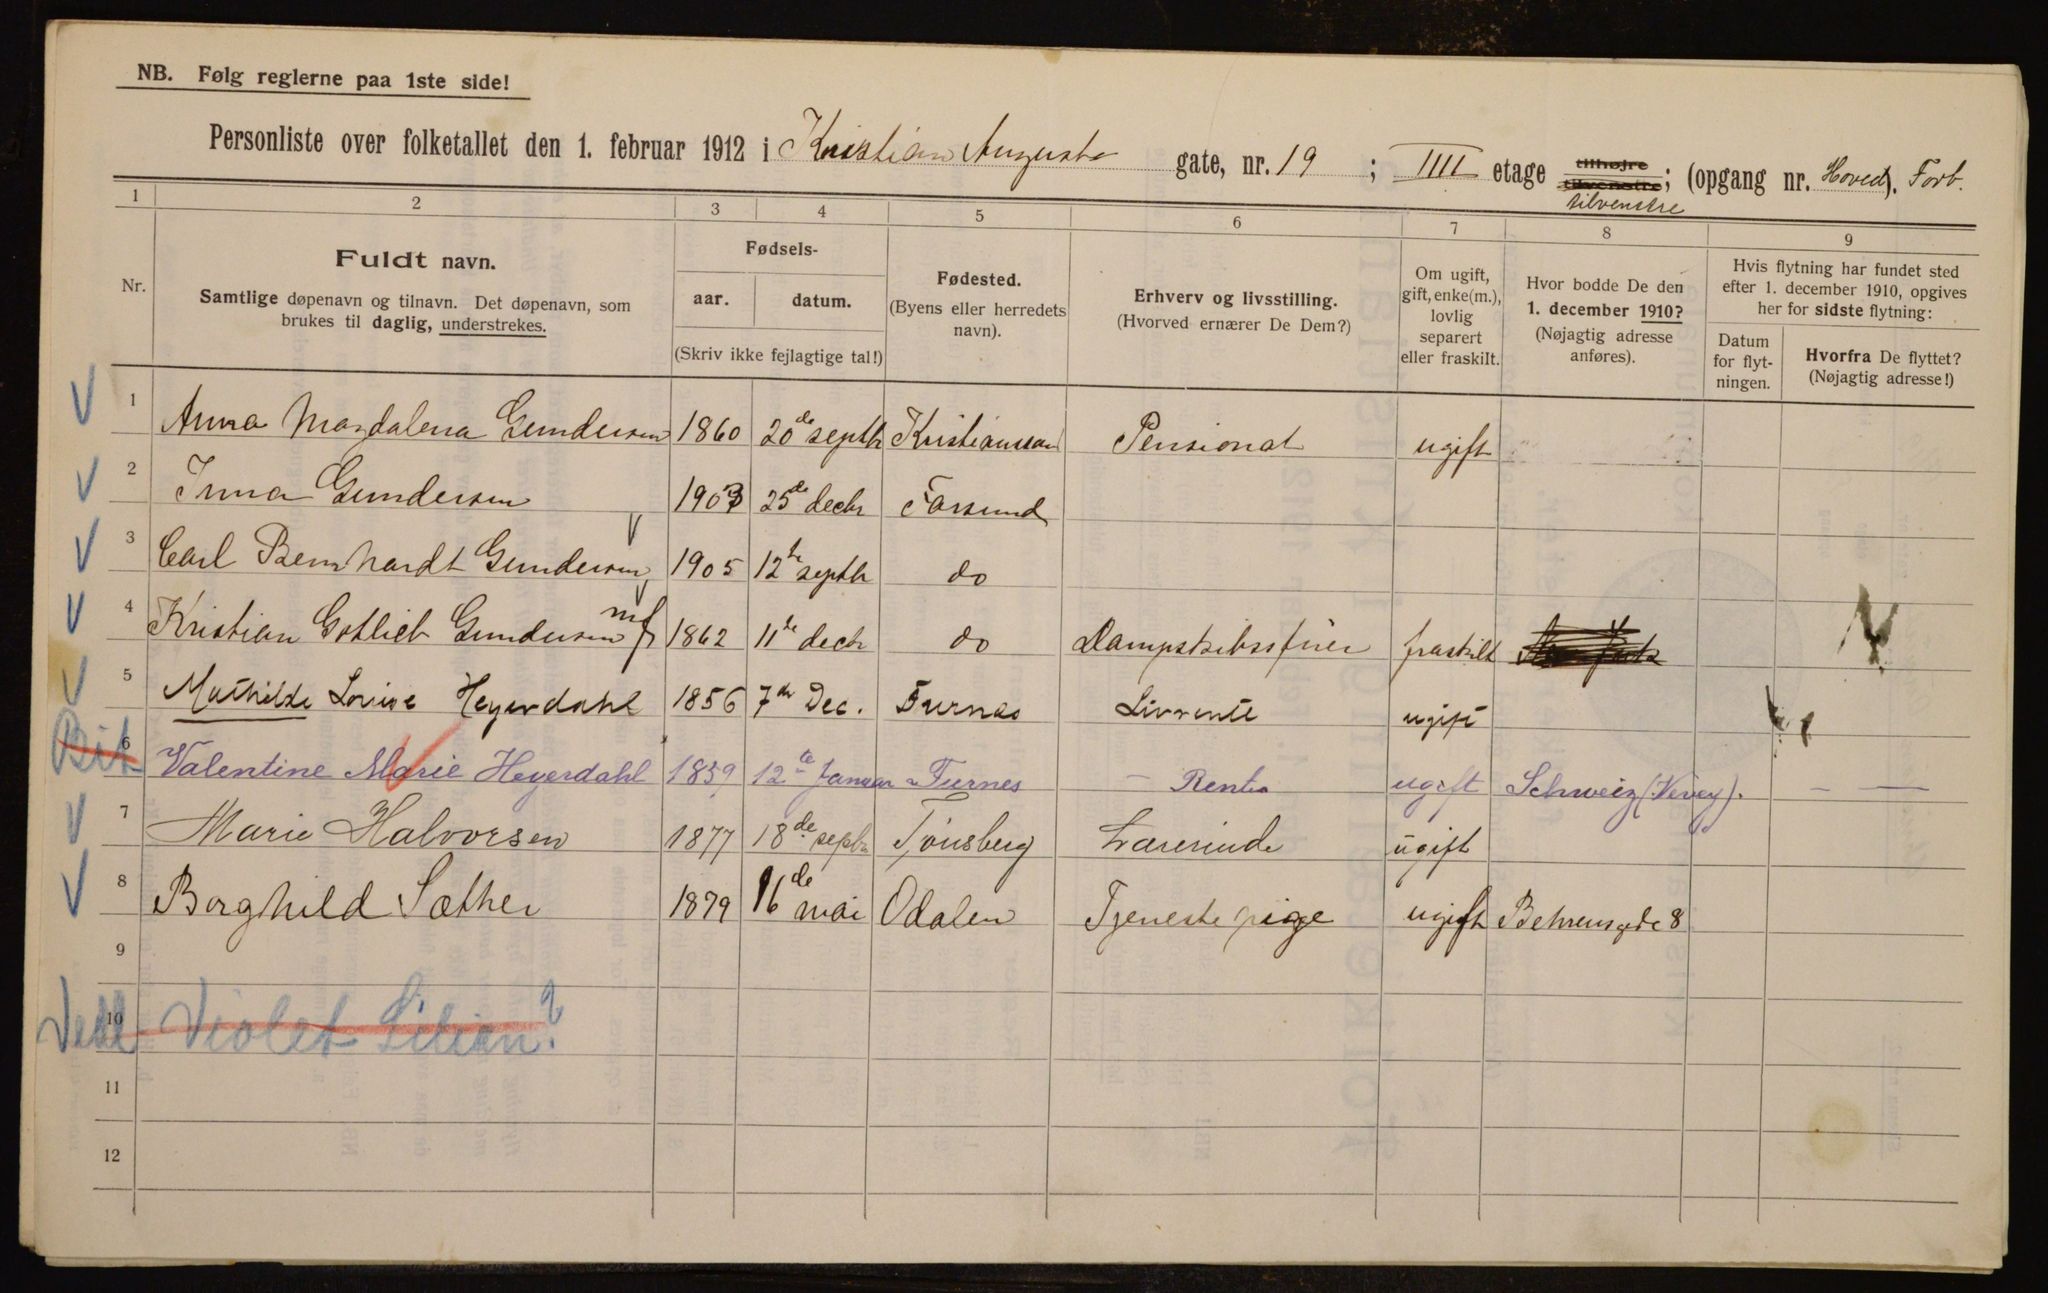 NB. Følg reglerne paa 1ste side!
Personliste over folketallet den 1. februar 1912 i Kristian Augusts gate, nr. 19 ; IIII etage tilhøjre tilvenstre; (opgang nr. Hoved). Forb.
tilvenstre
1 2 3 4 5 6 7 8 9
Nr. Fuldt navn. Samtlige døpenavn og tilnavn. Det døpenavn, som brukes til daglig, understrekes.
Fødsels- aar. datum. (Skriv ikke fejlagtige tal!)
Fødested. (Byens eller herredets navn).
Erhverv og livsstilling. (Hvorved ernærer De Dem?)
Om ugift, gift, enke(m.), lovlig separert eller fraskilt.
Hvor bodde De den 1. december 1910? (Nøjagtig adresse anføres).
Hvis flytning har fundet sted efter 1. december 1910, opgives her for sidste flytning:
Datum for flyt-ningen. Hvorfra De flyttet? (Nøjagtig adresse!)
V 1 Anna Magdalena Gundersen 1860 20de septbr Kristianssand Pensionat ugift
V 2 Inna Gundersen 1903 25de decbr Farsund
V 3 Carl Bernhardt Gundersen V 1905 12te septbr do
V 4 Kristian Gotlieb Gundersen mf 1862 11te decbr do Dampskibsfører fraskilt
V 5 Mathilde Louise Heyerdahl 1856 7de Dec. Furnes Livrente ugift
6 Valentine Marie Heyerdahl 1859 12te Januar Furnes — Rente ugift Schweiz (Vevey). — —
V 7 Marie Halvorsen 1877 18de septbr Tønsberg Lærerinde ugift
V 8 Borghild Sæther 1879 16de mai Odalen Tjenestepige ugift Behrensgde 8
9
10 Violet Lilian?
11
12